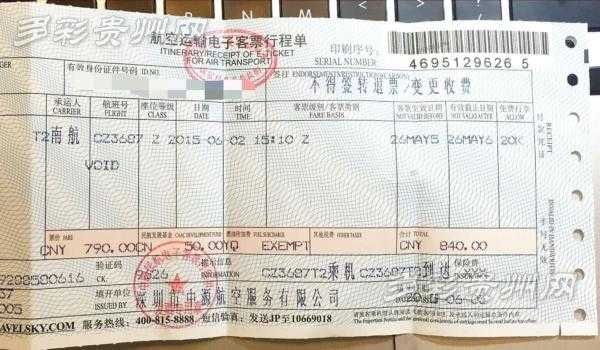 多彩贵州网
航空运输电子客票行程单
ITINERARY/RECEIPT OF E-TICKET
FOR AIR TRANSPORT
印刷序号:
SERIAL NUMBER:
4695129626 5
有效身份证件号码 ID.NO.
签注 ENDORSEMENTS/RESTRICTIONS(CARBON)
不得签转退票
变更收费
承运人 CARRIER 航班号 FLIGHT 座位等级 CLASS 日期 DATE 时间 TIME 客票级别/客票类别 FARE BASIS 客票生效日期 NOT VALID BEFORE 有效截止日期 NOT VALID AFTER 免费行李 ALLOW
T2南航 CZ3687 Z 2015-06-02 15:10 Z 26MAY5 26MAY6 20K
VOID
付款凭证 RECEIPT
手写无效 INVALID IN HANDWRITING
票价 FARE 民航发展基金 CAAC DEVELOPMENT FUND 燃油附加费 FUEL SURCHARGE 其他税费 OTHER TAXES 合计 TOTAL
CNY 790.00CN 50.00YQ EXEMPT CNY 840.00
92885800616 验证码 CK 2626 提示信息 INFORMATION CZ3687T2乘机 CZ3687T2到达 保险费
37
005 填开单位 ISSUED BY 深圳市中源航空服务有限公司
AVELSKY.COM 服务热线: 400-815-8888 短信验真: 发送JP至10669018
多彩贵州网